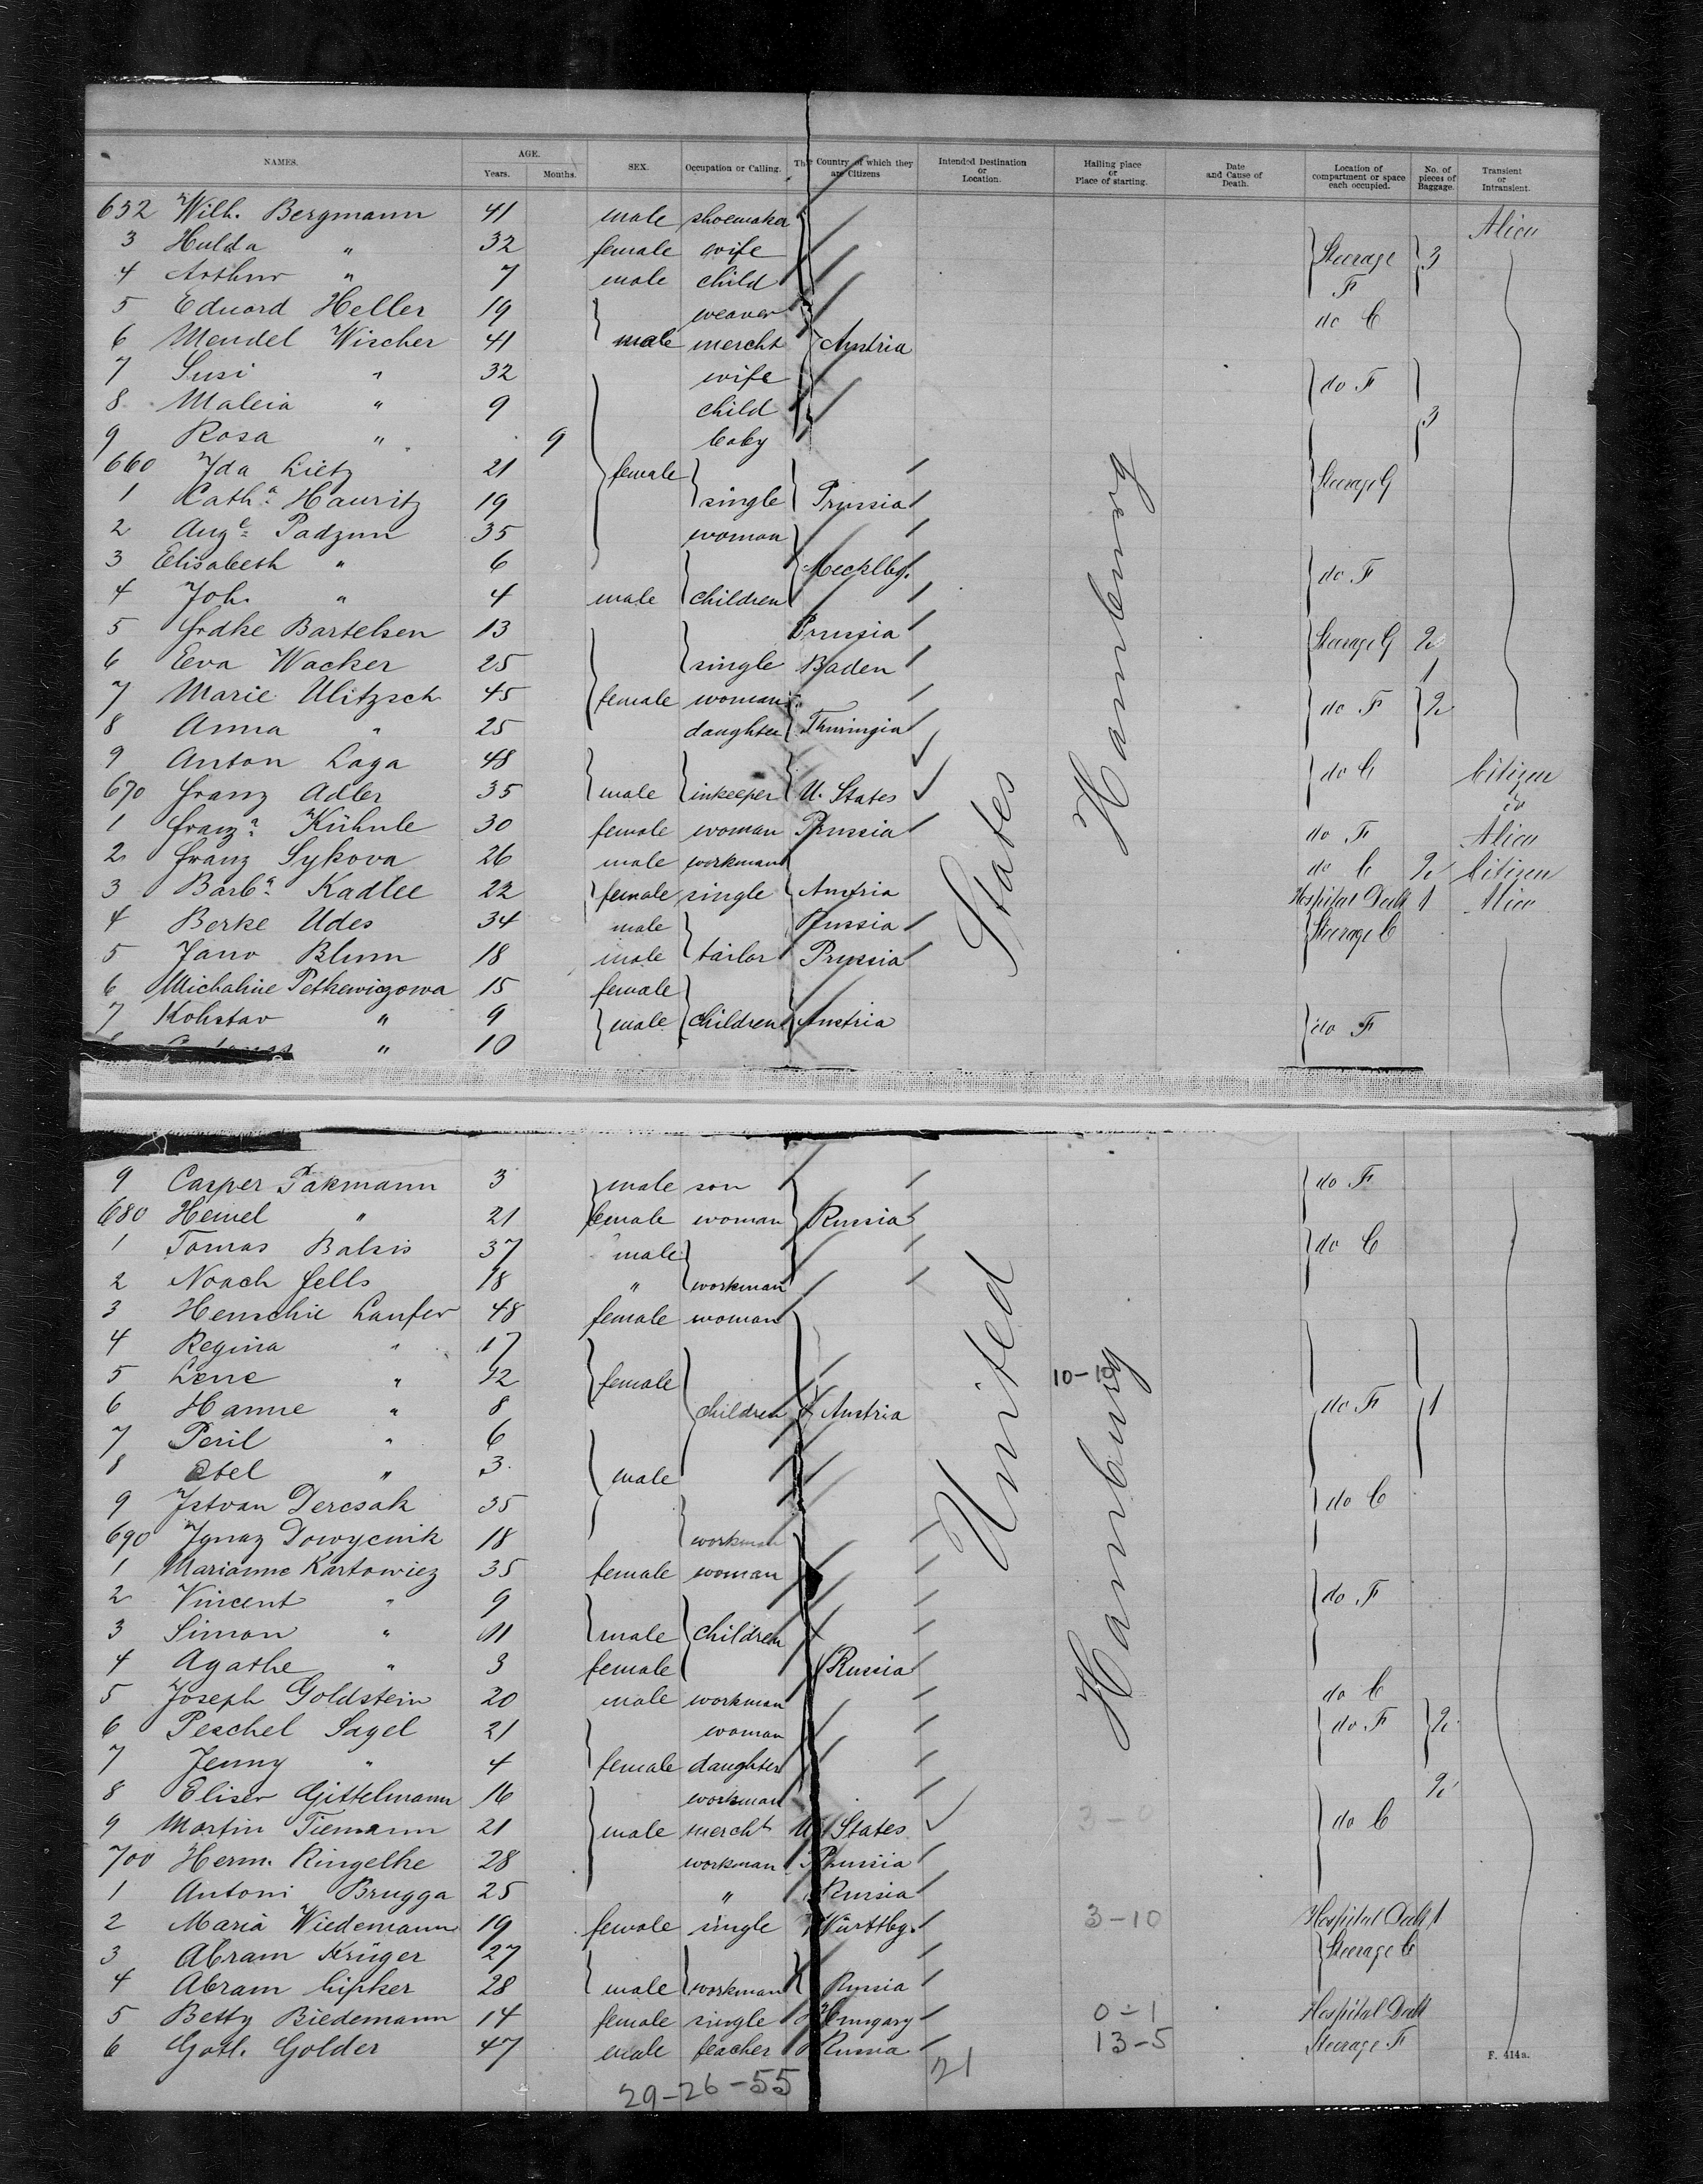 NAMES. AGE. Years. Months. SEX. Occupation or Calling. The Country of which they are Citizens Intended Destination or Location. Hailing place or Place of starting. Date and Cause of Death. Location of compartment or space each occupied. No. of pieces of Baggage. Transient or Intransient.
652 Wilh. Bergmann 41 male shoemaker Alien
3 Hulda " 32 female wife Steerage F 3
4 Arthur " 7 male child
5 Eduard Heller 19 weaver do C
6 Mendel Wischer 41 male mercht Austria
7 Susi " 32 wife do F
8 Maleia " 9 child 3
9 Rosa " 9 baby
660 Ida Lietz 21 female Steerage G
1 Catha. Hauritz 19 single Prussia
2 Auge. Padzun 35 woman
3 Elisabeth " 6 Mecklbg. do F
4 Joh. " 4 male children
5 Frdke Bartelsen 13 Prussia Steerage G 2
6 Eva Wacker 25 single Baden 1
7 Marie Ulitzsch 45 female woman do F 2
8 Anna " 25 daughter Thuringia
9 Anton Laga 48 do C Citizen
670 Franz Adler 35 male inkeeper U. States do
1 Franza. Kühnle 30 female woman Prussia do F Alien
2 Franz Sykova 26 male workman do C 2 Citizen
3 Barba. Kadlec 22 female single Austria Hospital Deck 1 Alien
4 Berke Udes 34 male Russia Steerage C
5 Jano Blum 18 male tailor Prussia
6 Michaline Petkewiczowa 15 female
7 Kohstav " 9 male children Austria do F
" 10
States
Hamburg
9 Casper Pakmann 3 male son do F
680 Hemel " 21 female woman Russia
1 Tomas Balsis 37 male do C
2 Noach Fells 18 " workman
3 Henschie Laufer 48 female woman
4 Regina " 17
5 Lene " 12 female 10-10
6 Hanne " 8 children Austria do F 1
7 Peril " 6
8 Etel " 3 male
9 Istvan Dercsak 35 do C
690 Ignaz Dowycnik 18 workman
1 Marianne Kartowicz 35 female woman
2 Vincent " 9 do F
3 Simon " 11 male children
4 Agathe " 3 female Russia
5 Joseph Goldstein 20 male workman do C
6 Peschel Sagel 21 woman do F 2
7 Jenny " 4 female daughter
8 Eliser Gittelmann 16 workman 2
9 Martin Tiemann 21 male mercht U States 3-0 do C
700 Herm. Ringelke 28 workman Prussia
1 Antoni Brugga 25 " Russia
2 Maria Wiedemann 19 female single Württbg. 3-10 Hospital Deck 1
3 Abram Krüger 27 Steerage C
4 Abram Lipker 28 male workman Russia
5 Betty Biedemann 14 female single Hungary 0-1 Hospital Deck
6 Gotl. Golder 47 male teacher Russia 13-5 Steerage F
United
Hamburg
29-26-55 21 F. 414a.